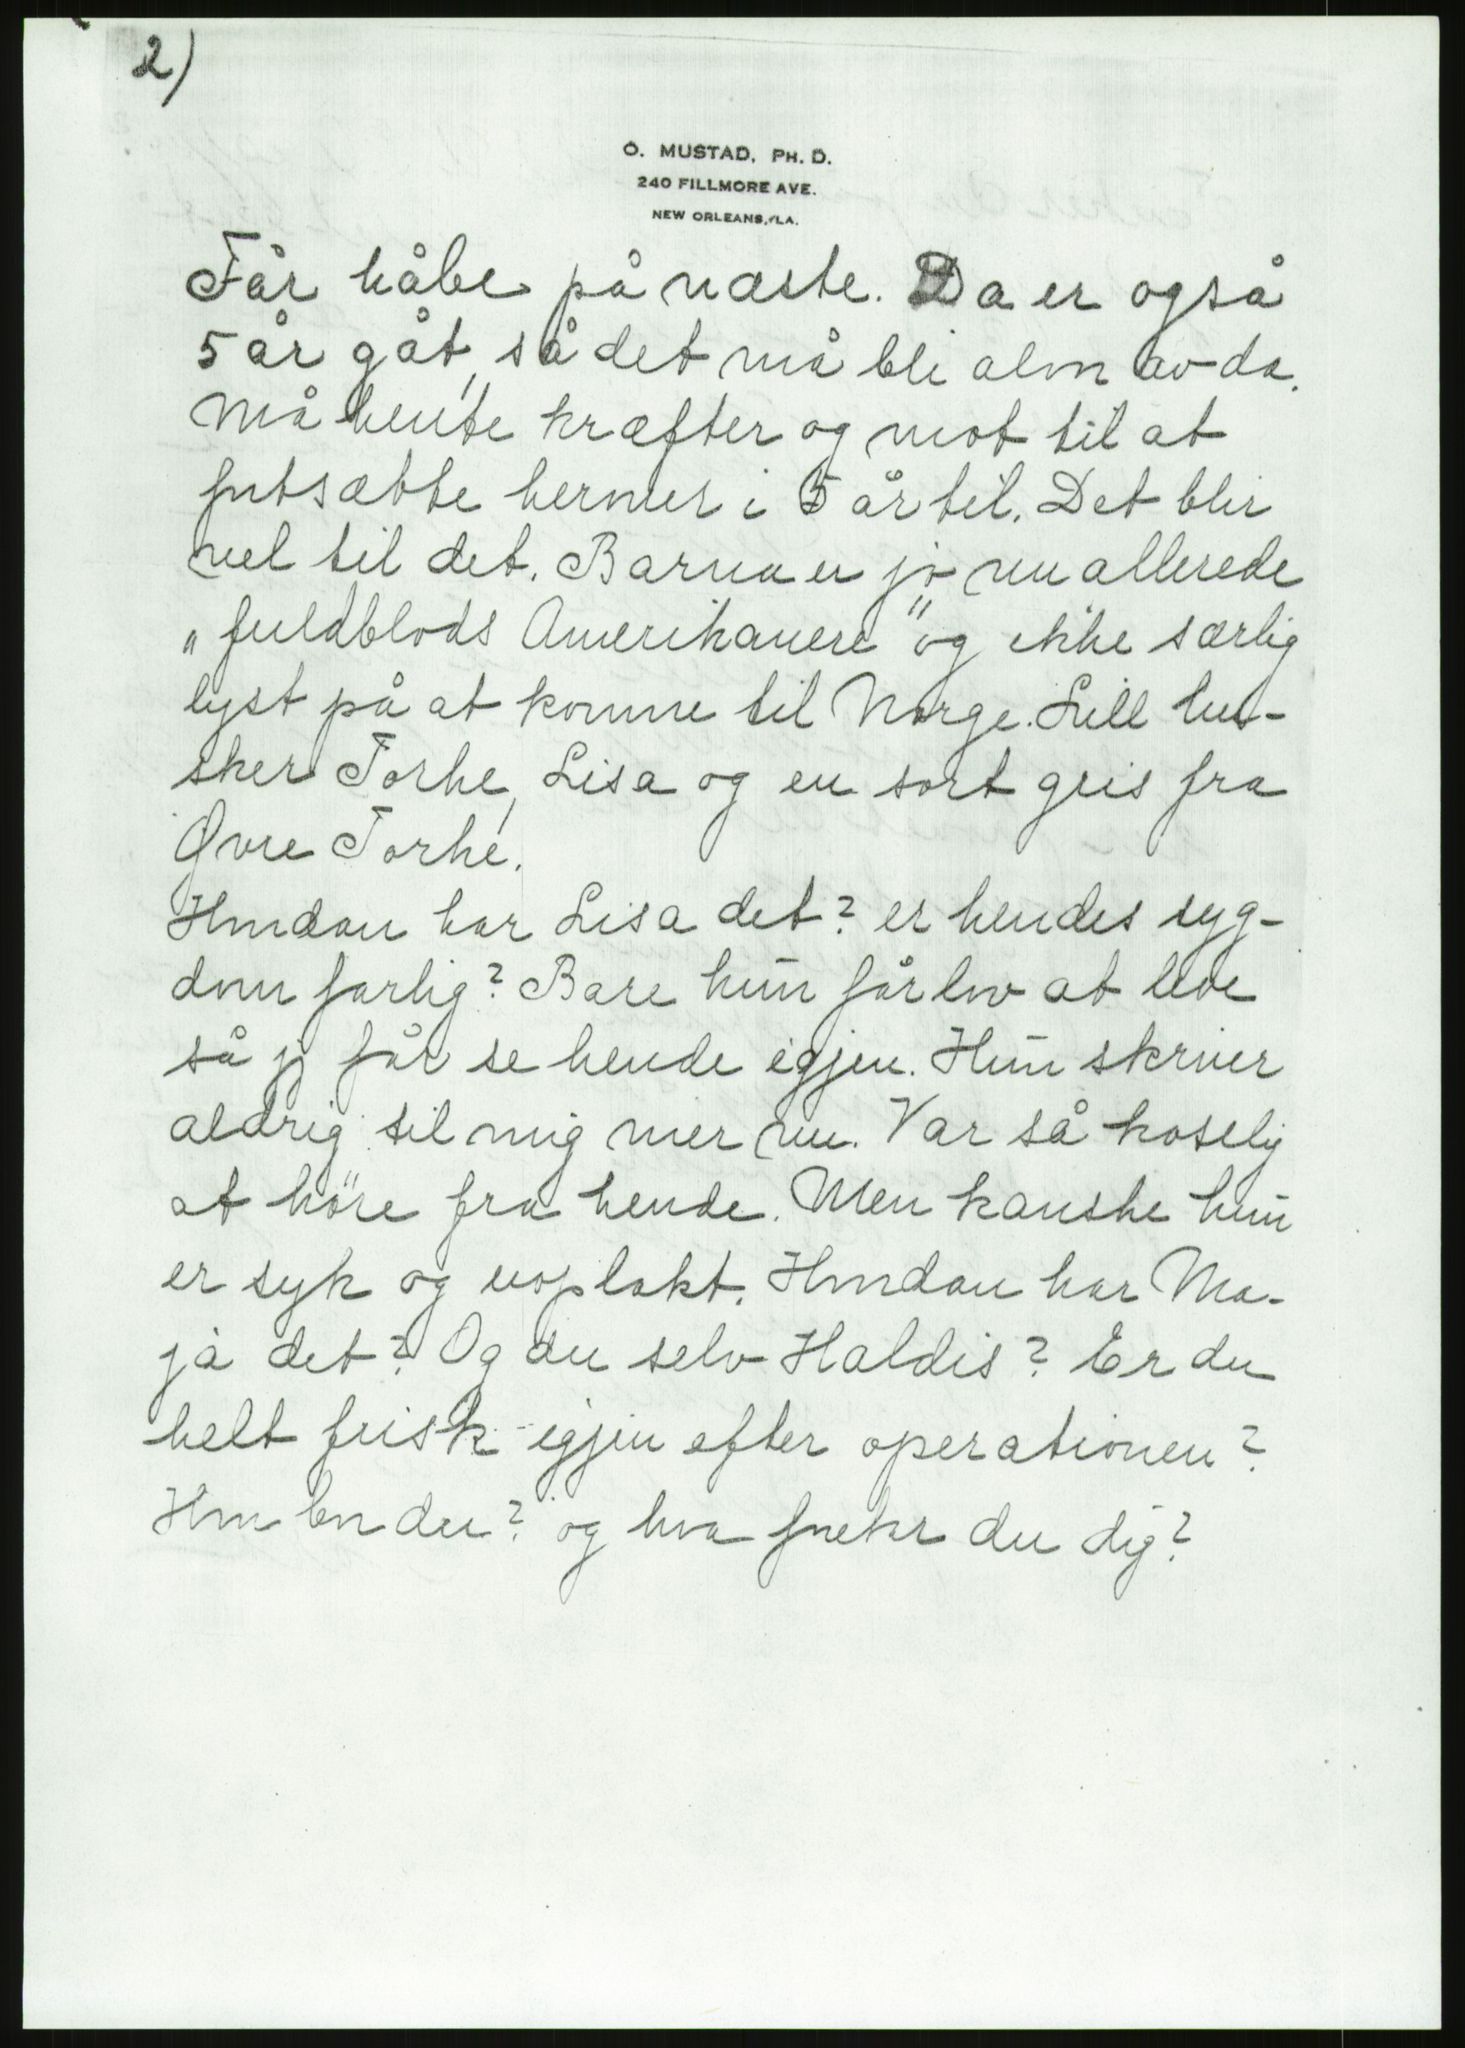 2)
O. MUSTAD, PH. D.
240 FILLMORE AVE.
NEW ORLEANS, LA.
Får håbe på næste. Da er også
5 år gåt, så det må bli alvor av da.
Må hente kræfter og mot til at
fortsætte herover i 5 år til. Det blir
vel til det. Barna er jo nu allerede
„fuldblods Amerikanere" og ikke særlig
lyst på at komme til Norge. Lill hu-
sker Torhe, Lisa og en sort gris fra
Øvre Torhe.
Hvordan har Lisa det? er hendes syg-
dom farlig? Bare hun får lov at leve
så jg får se hende igjen. Hun skriver
aldrig til mig mer nu. Var så koselig
at höre fra hende. Men kanske hun
er syk og uoplakt. Hvordan har Ma-
ja det? Og du selv Haldis? Er du
helt frisk igjen efter operationen?
Hvor bor du? og hva foretar du dig?